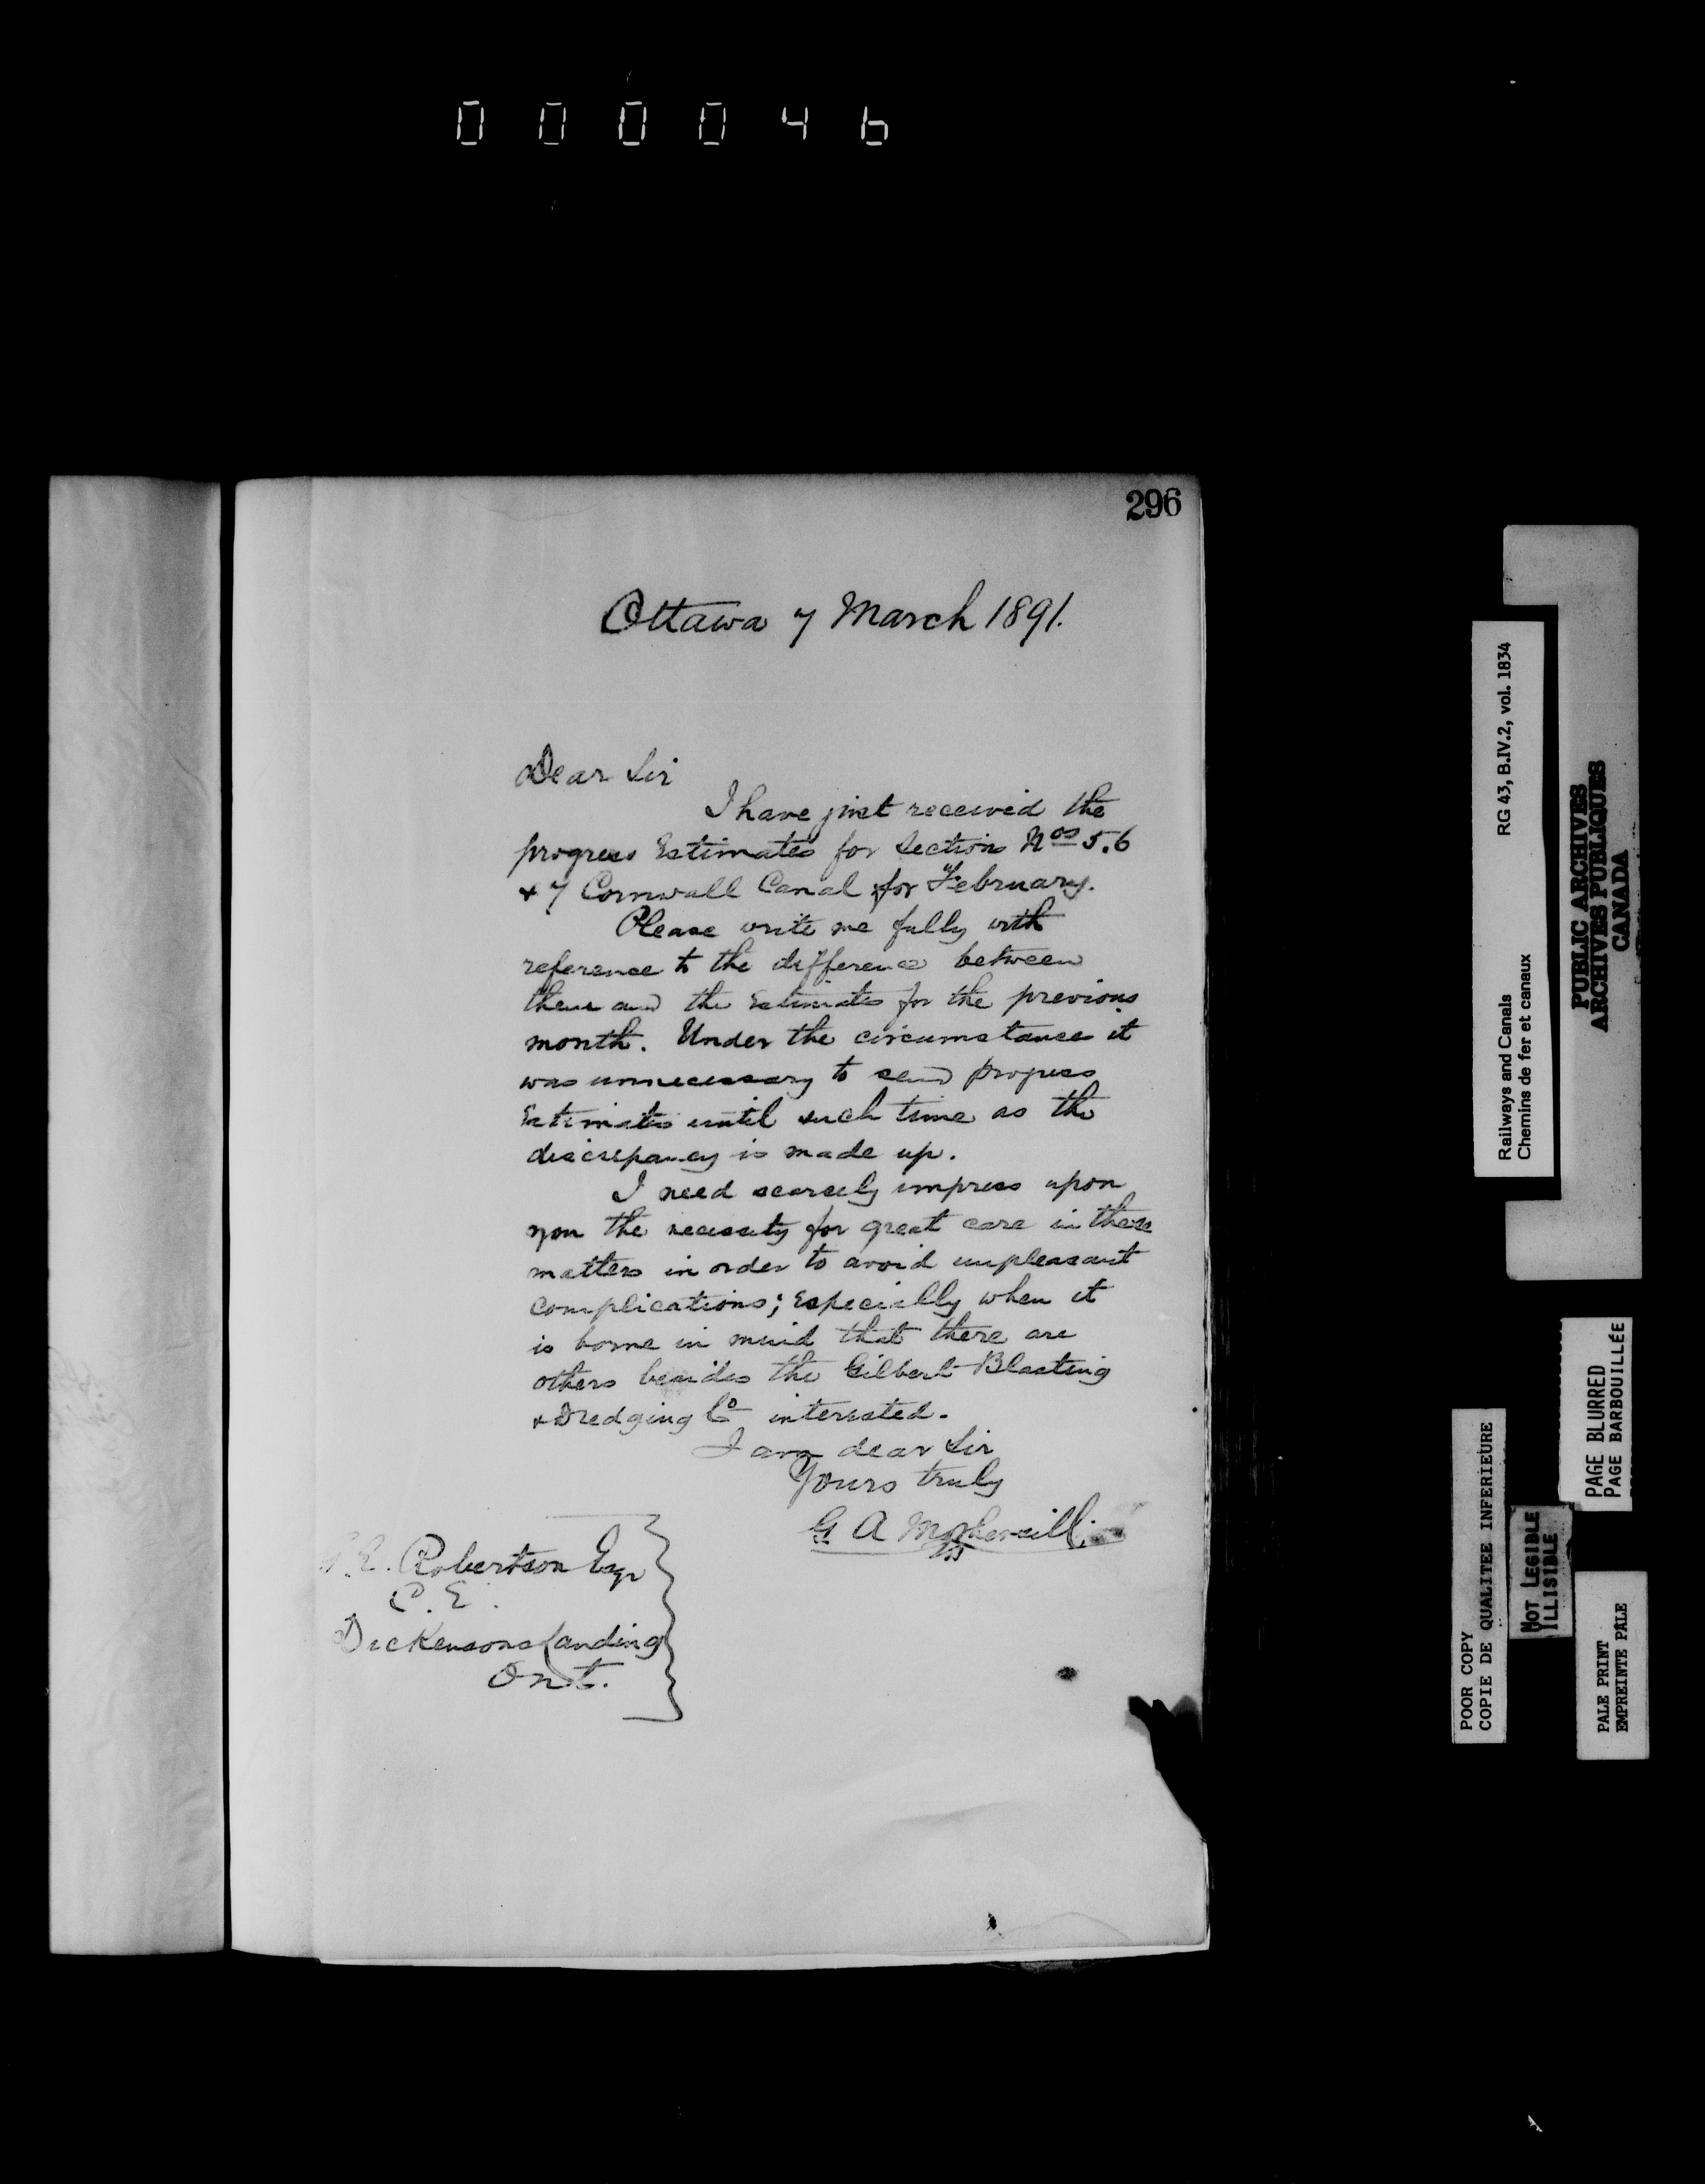 000046
296
Ottawa 7 March 1891.
Dear Sir
I have just received the
progress Estimates for Section Nos 5.6
& 7 Cornwall Canal for February.
Please write me fully with
reference to the difference between
these and the Estimates for the previous
month. Under the circumstances it
was unnecessary to send progress
Estimates until such time as the
discrepancy is made up.
I need scarcely impress upon
you the necessity for great care in these
matters in order to avoid unpleasant
complications; Especially when it
is borne in mind that there are
others besides the Gilbert Blasting
& Dredging Co interested.
I am dear Sir
Yours truly
G A
Robertson Esqr
C.E.
Dickensons Landing
Ont.
Railways and Canals RG 43, B.IV.2, vol. 1834
Chemins de fer et canaux
PUBLIC ARCHIVES
ARCHIVES PUBLIQUES
CANADA
PAGE BLURRED
PAGE BARBOUILLÉE
POOR COPY
COPIE DE QUALITEE INFERIEURE
NOT LEGIBLE
ILLISIBLE
PALE PRINT
EMPREINTE PÂLE